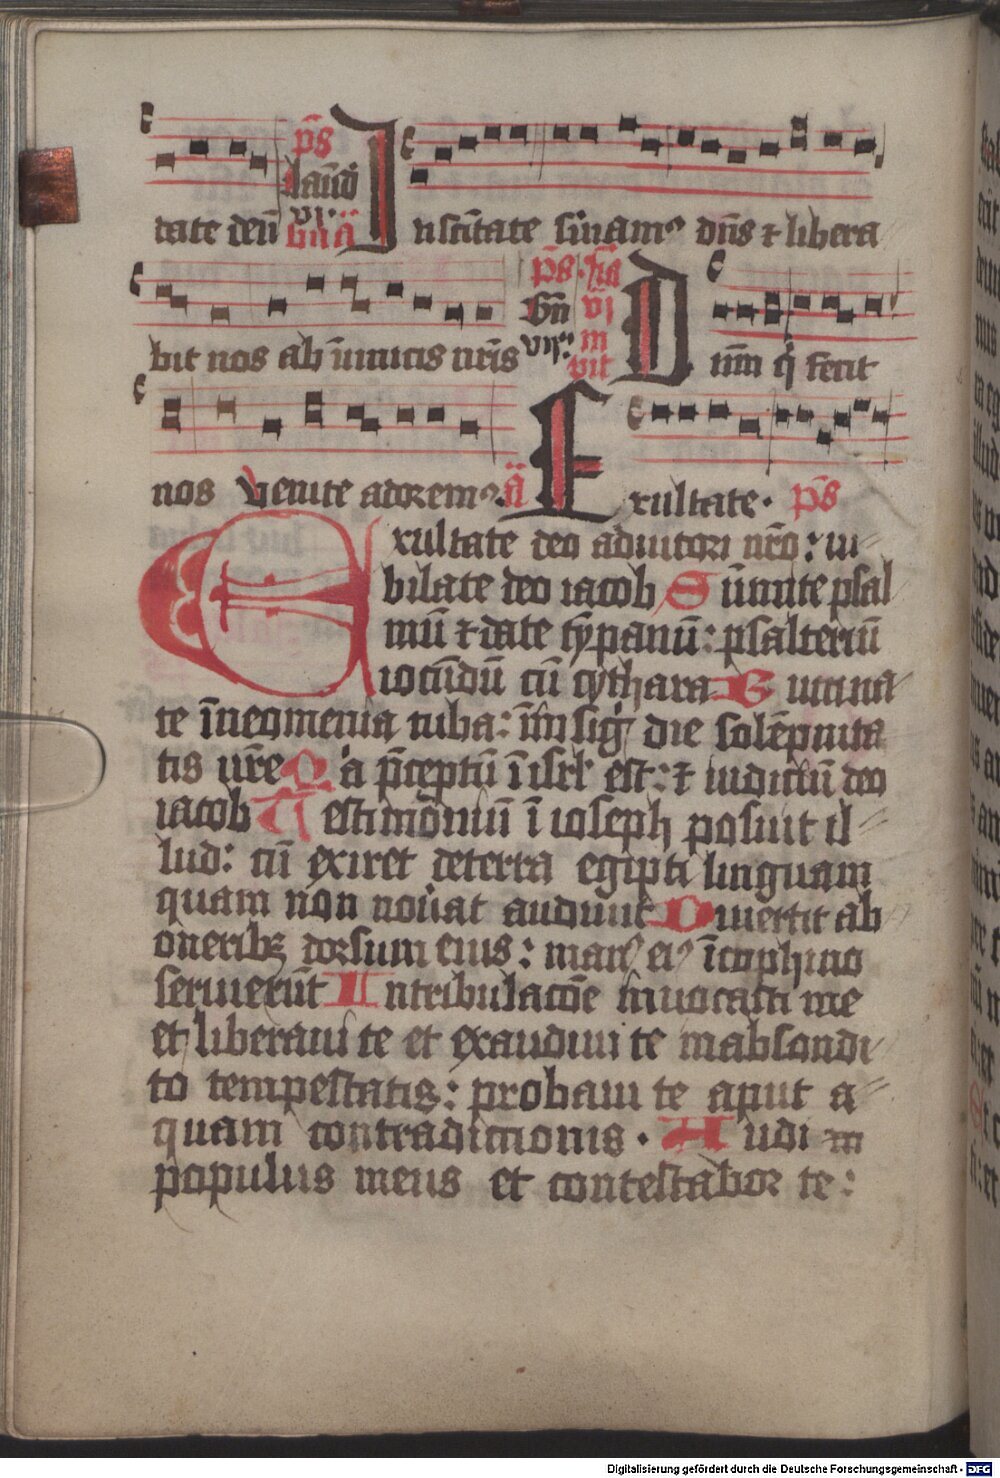 p̄s
laud̄
tate deū bn̄ā In sc̄itate s̄uiamꝰ dn̄s ⁊ libera
p̄s
bit nos ab īmicis nr̄is D nm̄ q̇ fecit
nos Venite adoremꝰ ā Exultate. p̄s
Exultate deo adiutori nr̄o: iu-
bilate deo iacob Sūmite psal
mū ⁊ date tȳpanū: psalteriū
iocūdū cū cythara Buccina
te ī neomenia tuba: ī īsiḡ die solēpnita
tis vr̄e Q̇a p̄ceptū ī isrl̄ est: ⁊ iudiciū deo
iacob Testimōniū ī ioseph posuit il-
lud: cū exiret deterra egipti linguam
quam non nouat audiuit Diuertit ab
oneribꝫ dorsum eius: manꝰ eiꝰ ī cophino
seruierūt In tribulac̄oe inuocasti me
et liberaui te et exaudiui te in absondi-
to tempestatis: probaui te aput a-
quam contradictionis. Audi
populus meus et contestabor te:
Digitalisierung gefördert durch die Deutsche Forschungsgemeinschaft - DFG